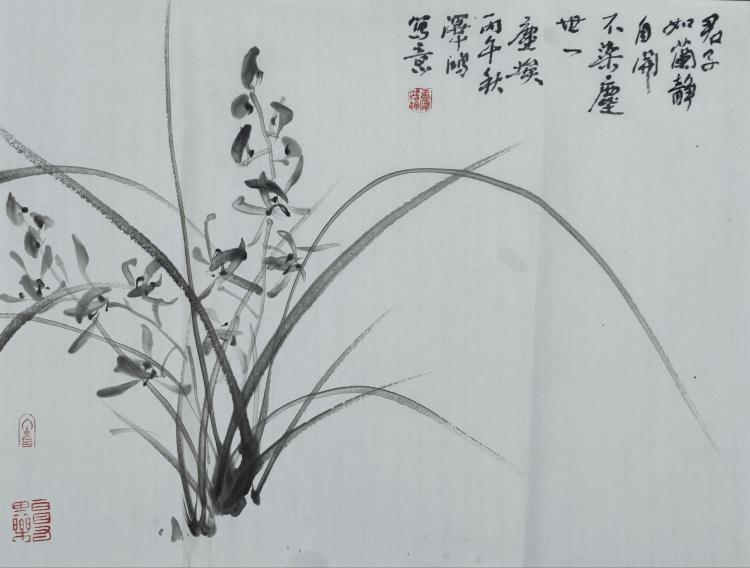 君子
如蘭靜
自開
不染塵
世一
塵埃
丙午秋
澤鴻
寫意